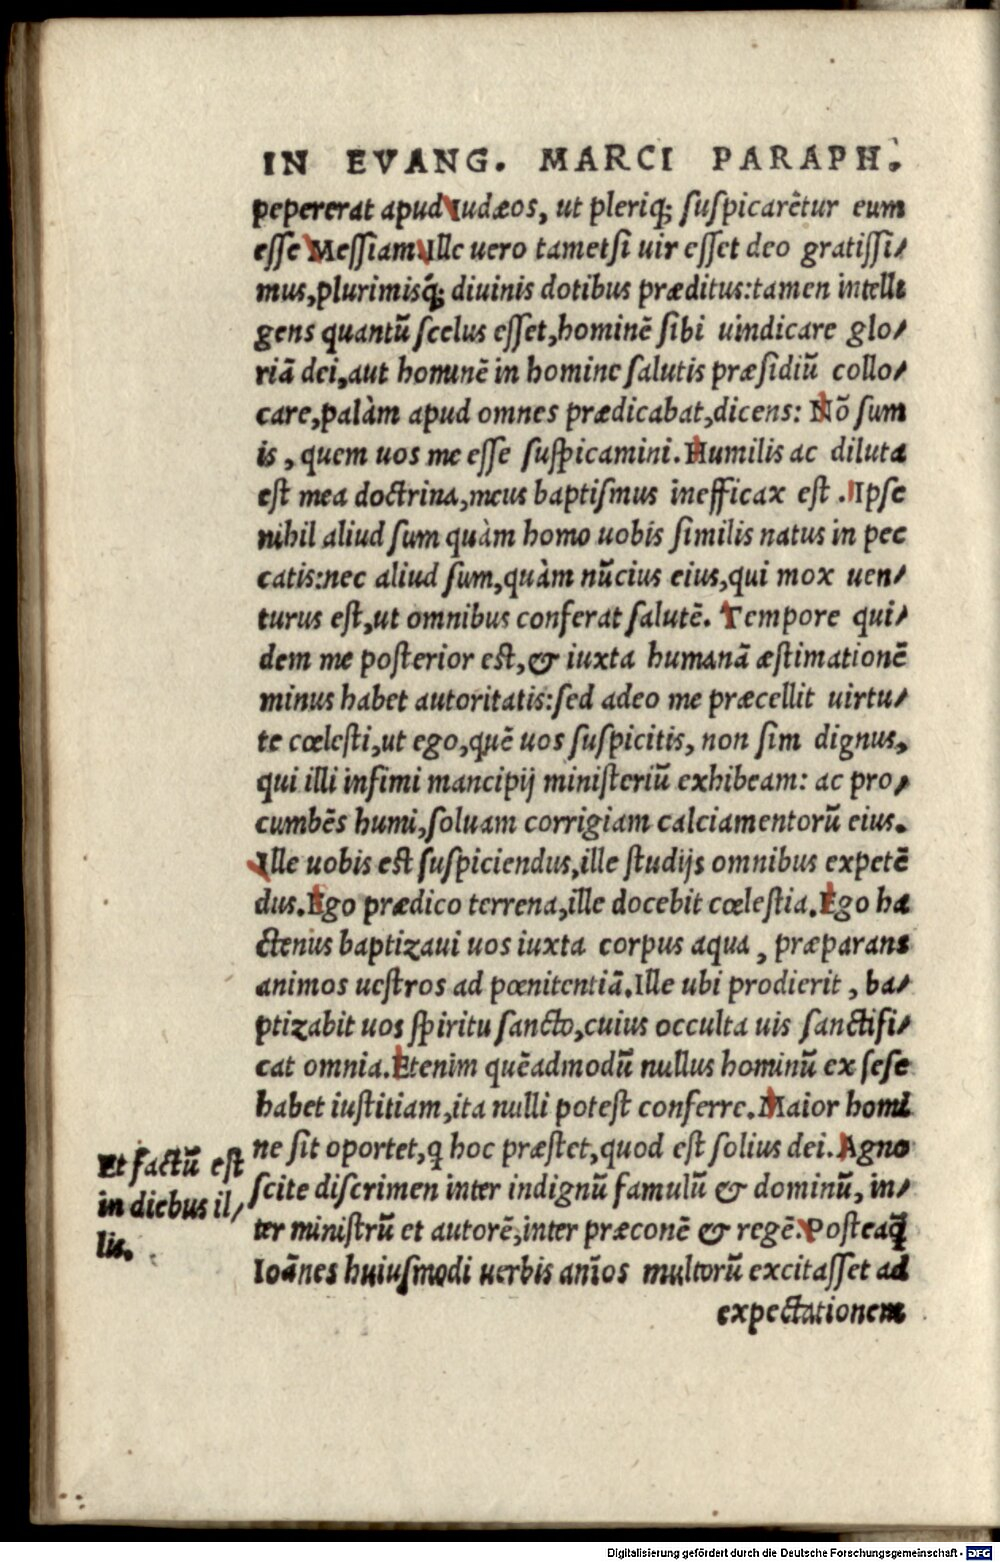 IN EVANG. MARCI PARAPH.
pepererat apud Iudæos, ut pleriq; suspicarētur eum
esse Messiam. Ille uero tametsi uir esset deo gratissi/
mus, plurimisq́; diuinis dotibus præditus: tamen intelli
gens quantū scelus esset, hominē sibi uindicare glo/
riā dei, aut hominē in homine salutis præsidiū collo/
care, palàm apud omnes prædicabat, dicens: Nō sum
is, quem uos me esse suspicamini. Humilis ac diluta
est mea doctrina, meus baptismus inefficax est. Ipse
nihil aliud sum quàm homo uobis similis natus in pec
catis: nec aliud sum, quàm nūcius eius, qui mox uen/
turus est, ut omnibus conferat salutē. Tempore qui/
dem me posterior est, & iuxta humanā æstimationē
minus habet autoritatis: sed adeo me præcellit uirtu/
te cœlesti, ut ego, quē uos suspicitis, non sim dignus,
qui illi infimi mancipij ministeriū exhibeam: ac pro/
cumbēs humi, soluam corrigiam calciamentorū eius.
Ille uobis est suspiciendus, ille studijs omnibus expetē
dus. Ego prædico terrena, ille docebit cœlestia. Ego ha
ctenus baptizaui uos iuxta corpus aqua, præparans
animos uestros ad pœnitentiā. Ille ubi prodierit, ba/
ptizabit uos spiritu sancto, cuius occulta uis sanctifi/
cat omnia. Etenim quēadmodū nullus hominū ex sese
habet iustitiam, ita nulli potest conferre. Maior homi
ne sit oportet, q hoc præstet, quod est solius dei. Agno
scite discrimen inter indignū famulū & dominū, in/
ter ministrū et autorē, inter præconē & regē. Posteaq̄
Ioānes huiusmodi uerbis anīos multorū excitasset ad
expectationem
Et factū est
in diebus il/
lis.
Digitalisierung gefördert durch die Deutsche Forschungsgemeinschaft - DFG